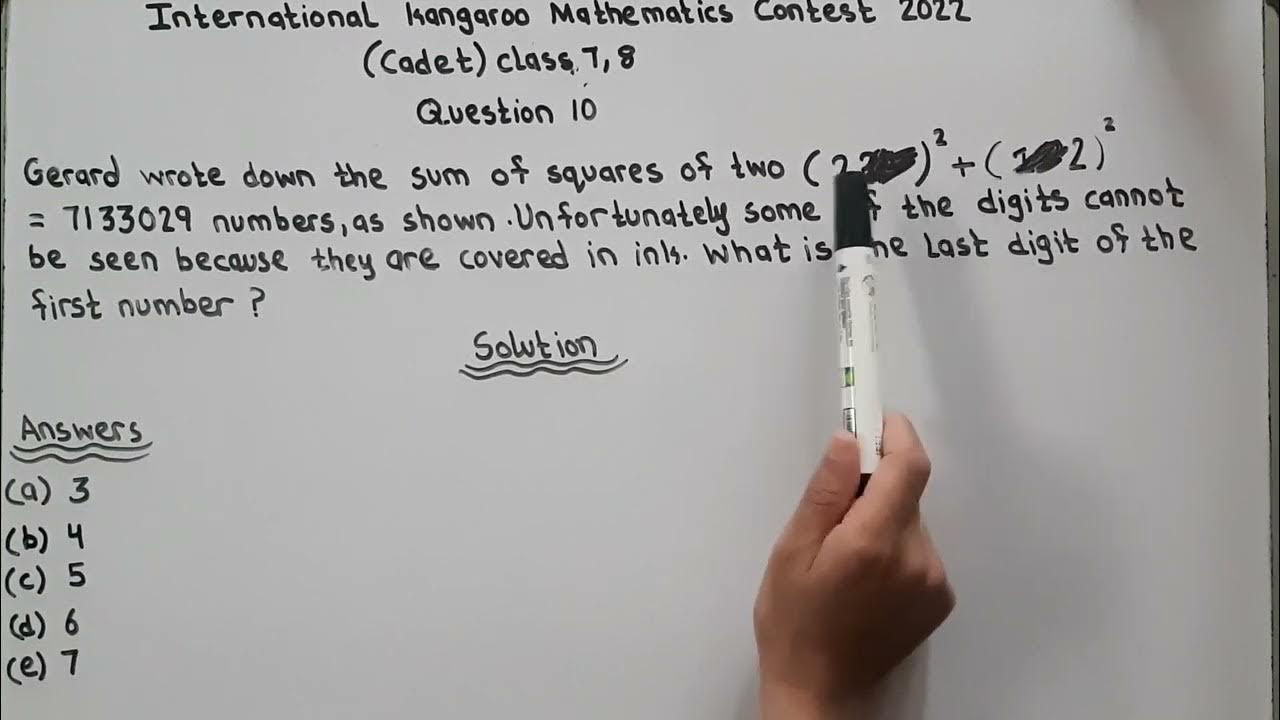 International Kangaroo Mathematics Contest 2022
(Cadet) class 7, 8
Question 10
Gerard wrote down the sum of squares of two (2)² + (12)²
= 7133029 numbers, as shown. Unfortunately some the digits cannot
be seen because they are covered in ink. What is last digit of the
first number?
Solution
Answers
(a) 3
(b) 4
(c) 5
(d) 6
(e) 7